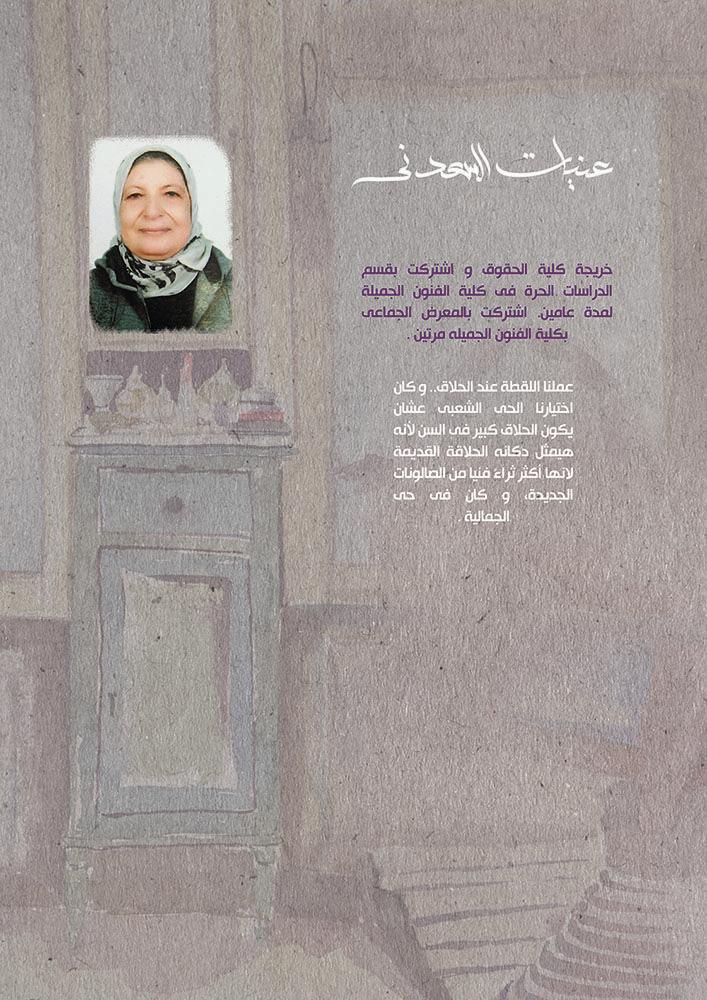 عنيات السعدنى
خريجة كلية الحقوق و اشتركت بقسم
الدراسات الحرة فى كلية الفنون الجميلة
لمدة عامين. اشتركت بالمعرض الجماعى
بكلية الفنون الجميله مرتين .
عملنا اللقطة عند الحلاق.. و كان
اختيارنا الحى الشعبى عشان
يكون الحلاق كبير فى السن لأنه
هيمثل دكانه الحلاقة القديمة
لانها أكثر ثراءً فنيا من الصالونات
الجديدة، و كان فى حى
الجمالية .